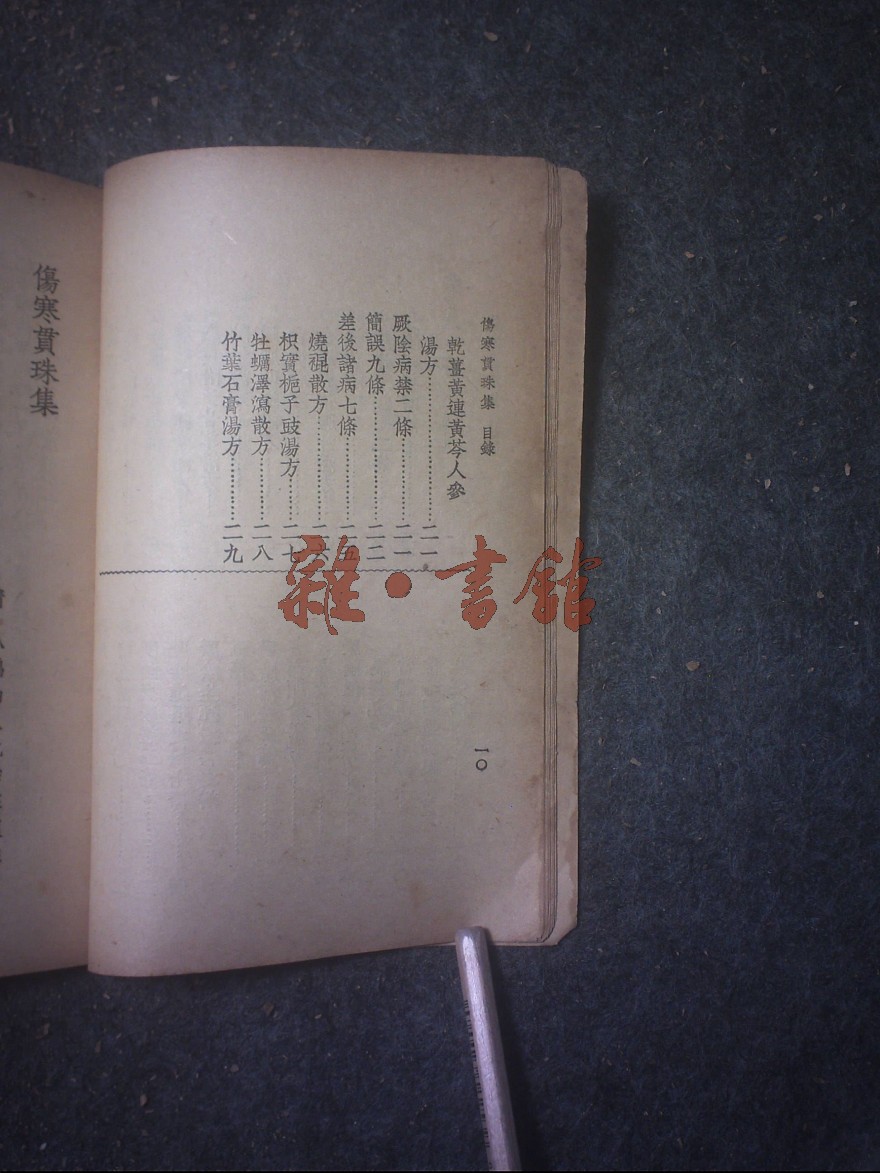 傷寒貫珠集 目錄
乾薑黃連黃芩人參
湯方……二一
厥陰病禁二條……二一
簡誤九條……二二
差後諸病七條……二五
燒裩散方……二六
枳實梔子豉湯方……二七
牡蠣澤瀉散方……二八
竹葉石膏湯方……二九
一〇
傷寒貫珠集
雜·書館